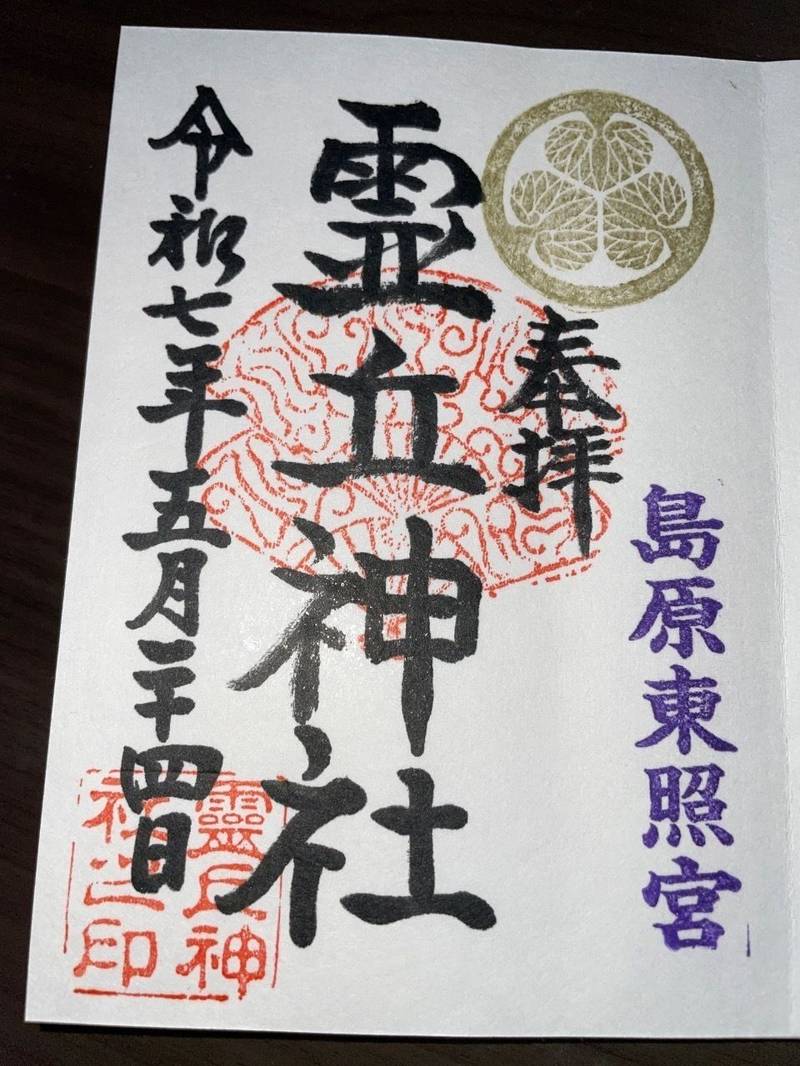 島原東照宮
奉拝
霊丘神社
令和七年五月二十四日
靈丘神
社之印